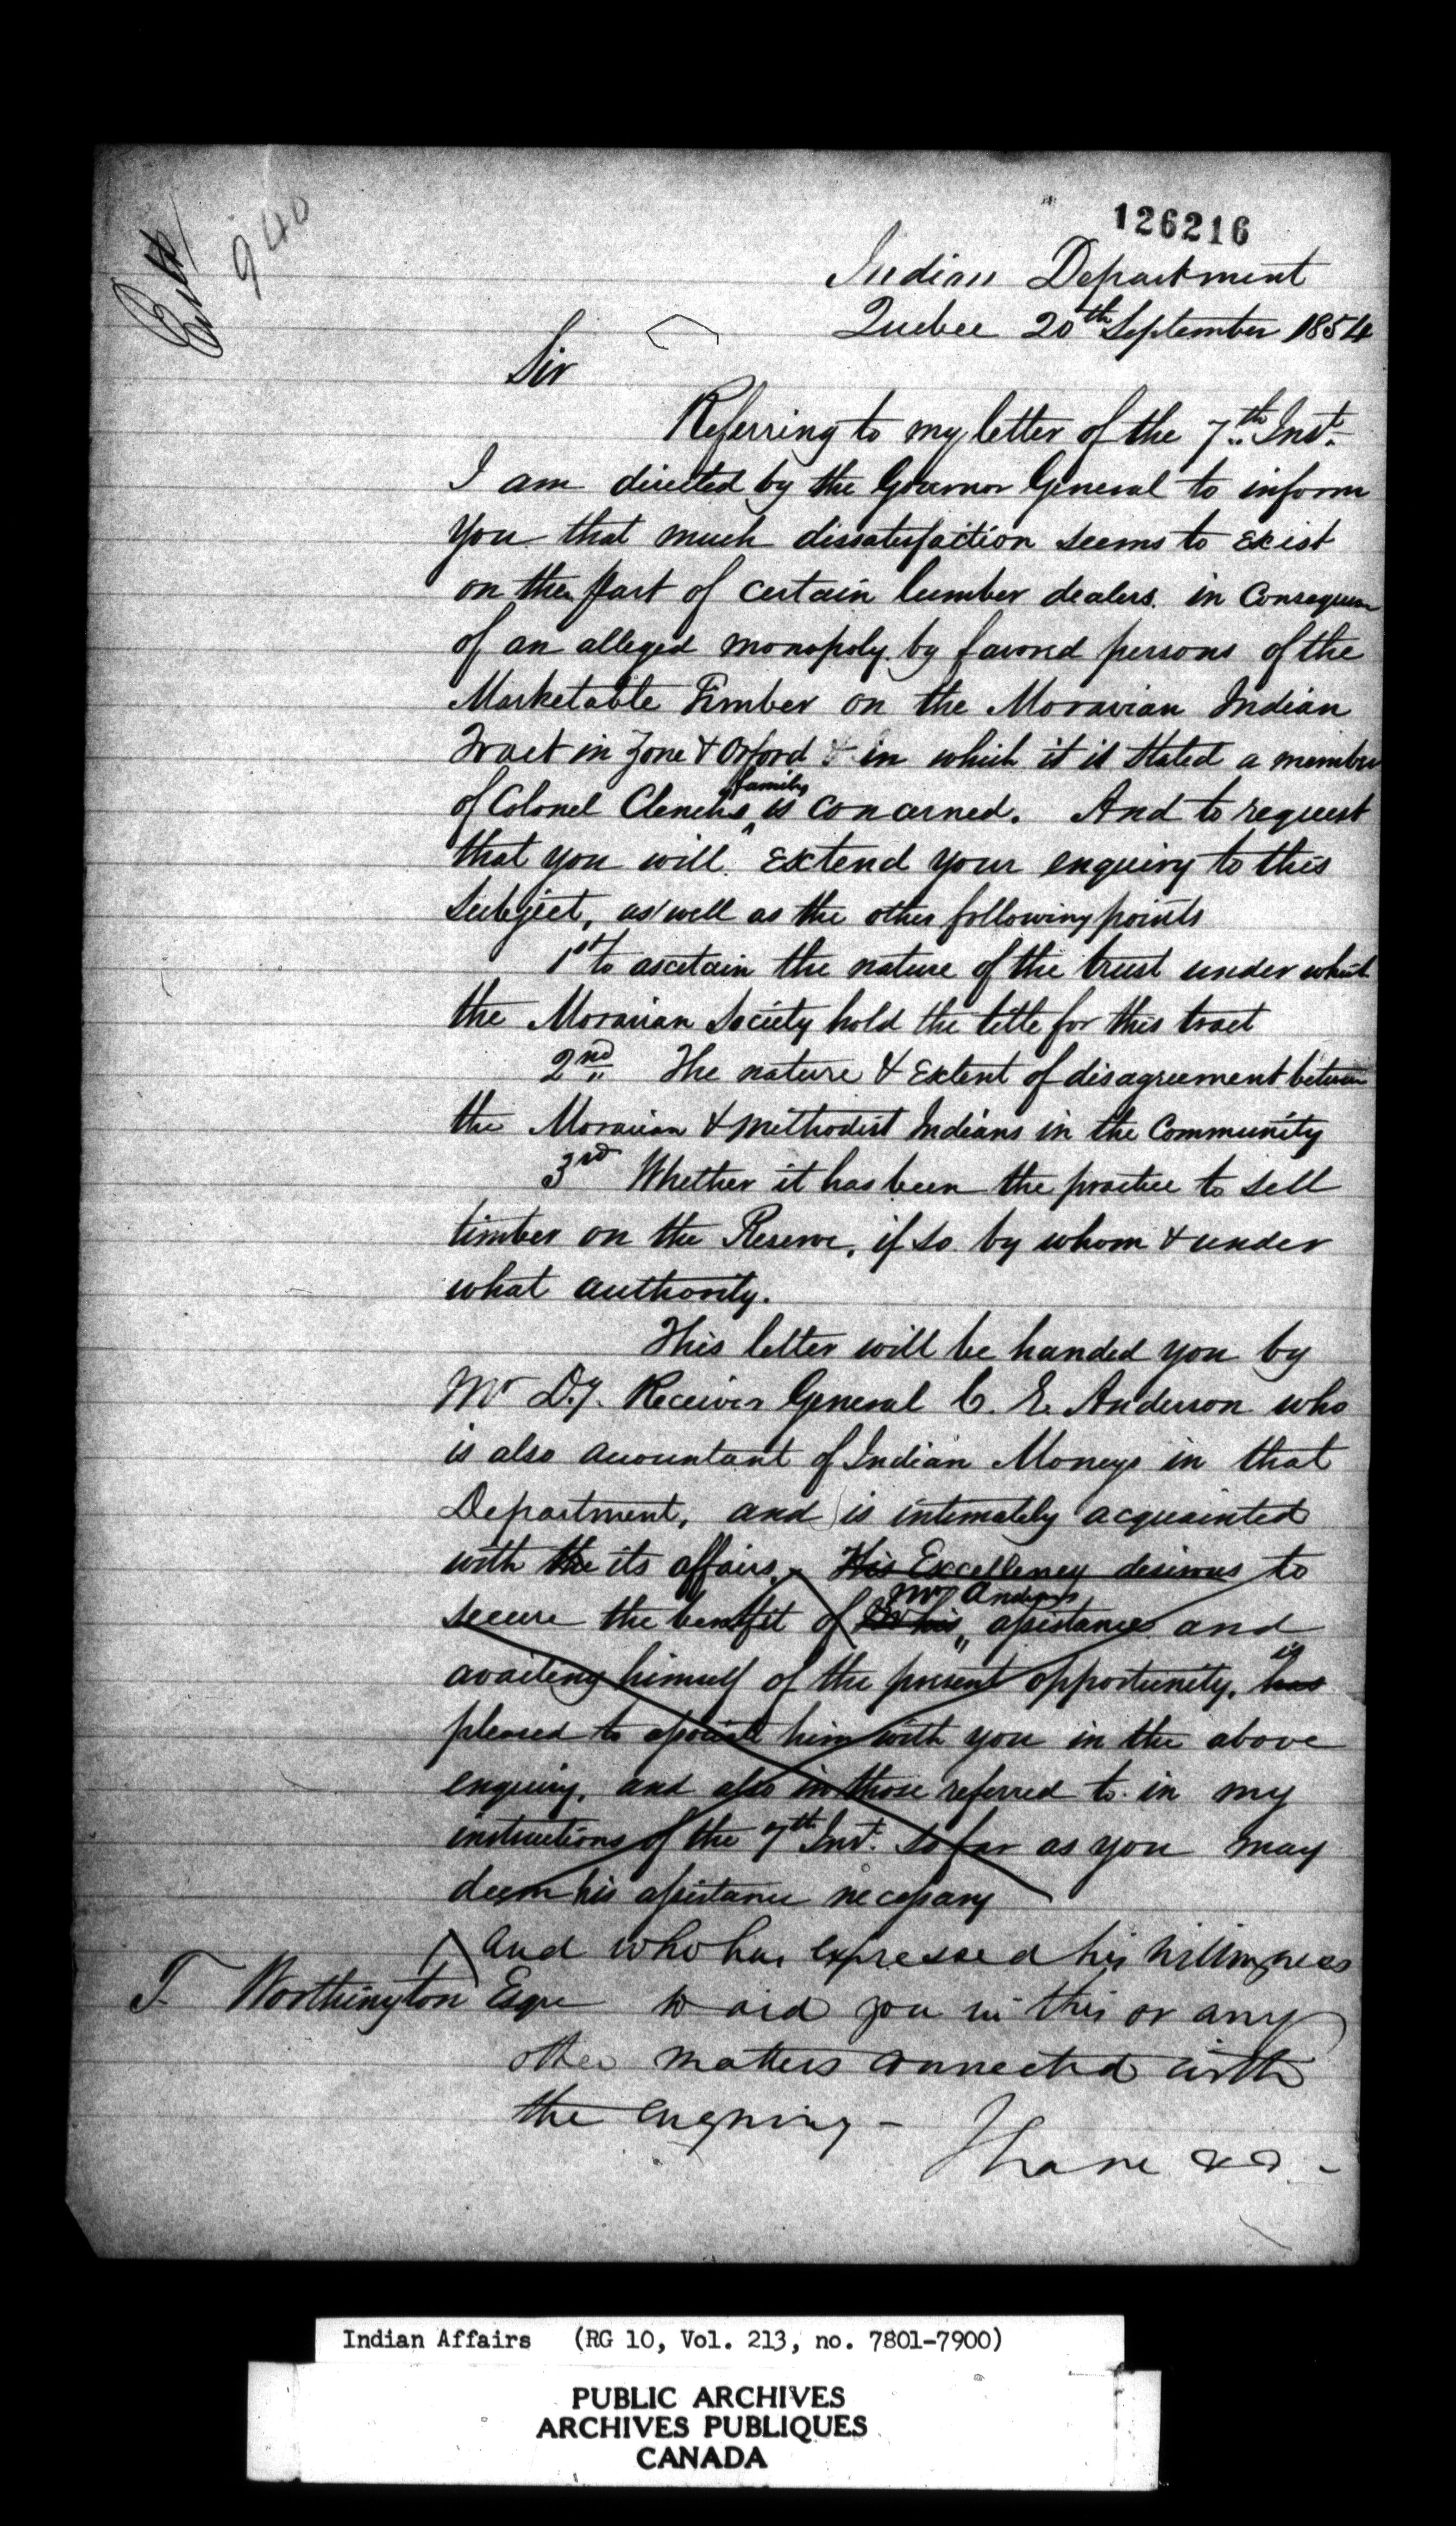 126216
940
Entd
Indian Department
Quebec 20th September 1854
Sir
Referring to my letter of the 7th Inst.
I am directed by the Governor General to inform
you that much dissatisfaction seems to exist
on the part of certain lumber dealers in Consequen
of an alleged monopoly by favored persons of the
Marketable Timber on the Moravian Indian
Tract in Zone & Orford & in which it is stated a member
of Colonel Clench's family is concerned. And to request
that you will extend your enquiry to this
subject, as well as the other following points
1st to ascetain the nature of the trust under which
the Moravian Society hold the title for this tract
2nd The nature & Extent of disagreement between
the Moravian & Methodist Indians in the Community
3rd Whether it has been the practice to sell
timber on the Reserve, if so by whom & under
what authority.
This letter will be handed you by
Mr Dy. Receiver General C. E. Anderson who
is also Accountant of Indian Moneys in that
Department, and is intimately acquainted
with the its affairs. His Excellency desirous to
secure the benefit of his Mr Anderson assistance and
availing himself of the present opportunity, has is
pleased to associate him with you in the above
enquiry, and also in those referred to in my
instructions of the 7th Inst. so far as you may
deem his assistance necessary
and who has expressed his willingness
T. Worthington Esqre to aid you in this or any
other matters connected with
the enquiry -
I have &c -
Indian Affairs (RG 10, Vol. 213, no. 7801-7900)
PUBLIC ARCHIVES
ARCHIVES PUBLIQUES
CANADA